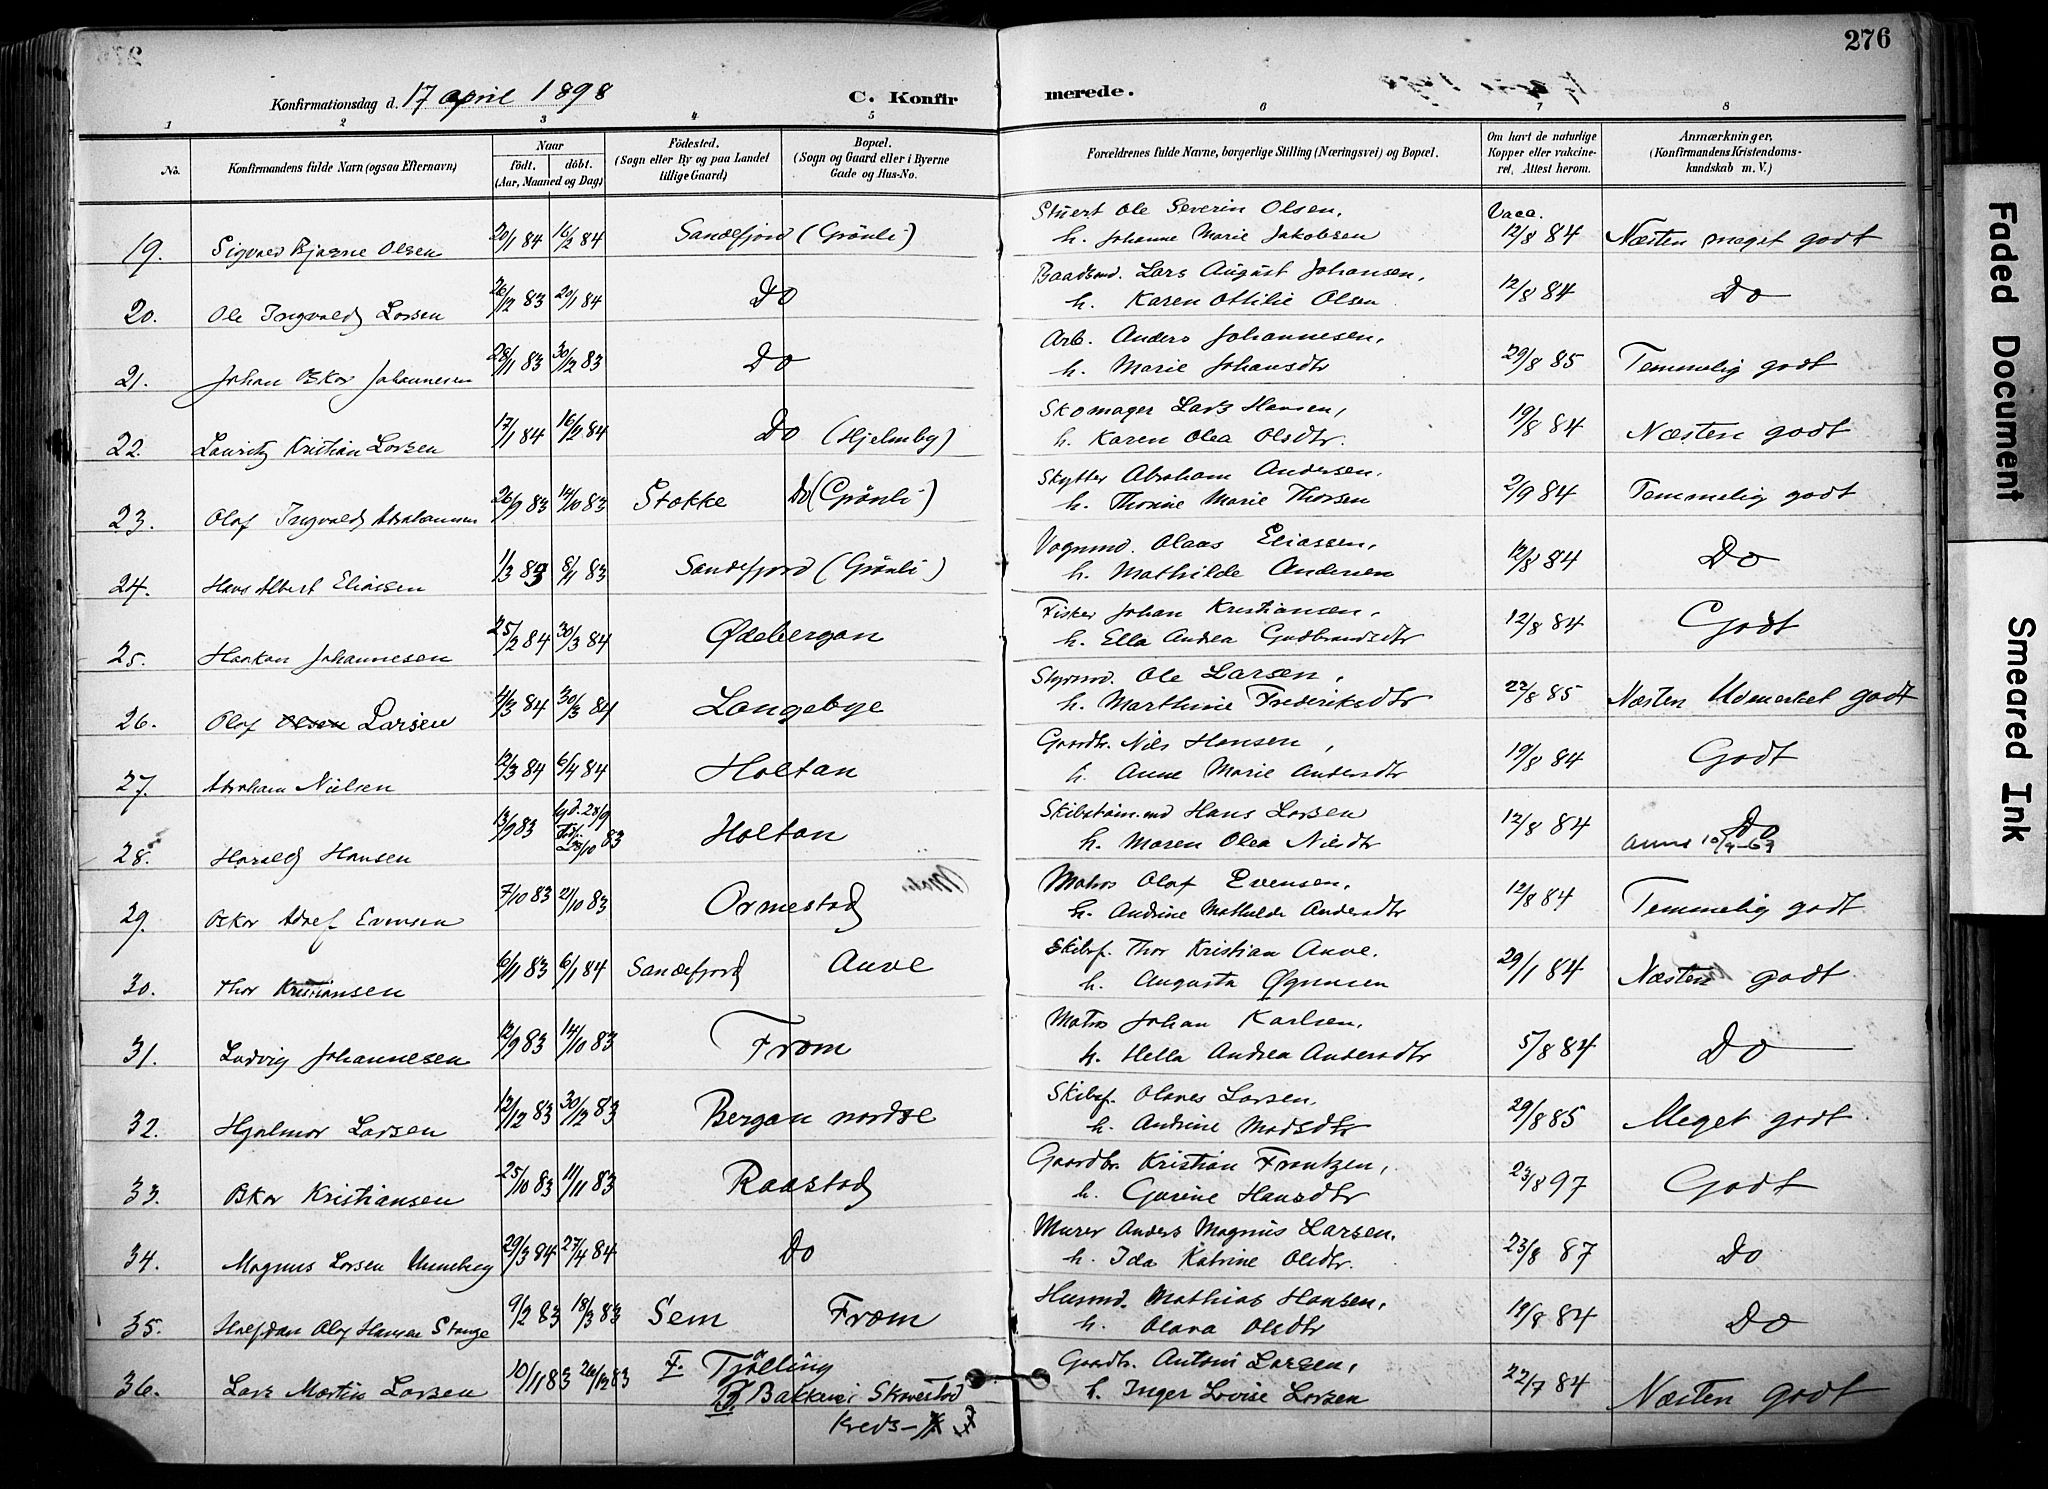 276
Konfirmationsdag d. 17 april 1898 C. Konfirmerede.
1 2 3 4 5 6 7 8
No. Konfirmandens fulde Navn (ogsaa Efternavn) Naar födt. döbt. (Aar, Maaned og Dag) Födested. (Sogn eller By og paa Landet tillige Gaard) Bopæl. (Sogn og Gaard eller i Byerne Gade og Hus-No. Forældrenes fulde Navne, borgerlige Stilling (Næringsvei) og Bopæl. Om havt de naturlige Kopper eller vakcineret, Attest herom. Anmærkninger. (Konfirmandens Kristendomskundskab m. V.)
19. Sigvald Bjarne Olsen 20/1 84 16/2 84 Sandefjord (Grönli) Stuert Ole Severin Olsen, Vacc.
h. Johanne Marie Jakobsen 12/8 84 Næsten meget godt
20. Ole Ingvald Larsen 26/12 83 20/1 84 Do Baadsmd. Lars August Johansen,
h. Karen Ottilie Olsen 12/8 84 Do
21. Johan Oskar Johannesen 28/11 83 30/12 83 Do Arb. Anders Johannesen,
h. Marie Johansdtr 29/8 85 Temmelig godt
22. Lauritz Kristian Larsen 17/1 84 16/2 84 Do (Hjelmby) Skomager Lars Hansen,
h. Karen Olea Olsdtr. 19/8 84 Næsten godt
23. Olaf Ingvald Abrahamsen 26/9 83 14/10 83 Stokke Do (Grönli) Skytter Abraham Andersen.
h. Thorine Marie Thorsen 2/9 84 Temmelig godt
24. Hans Albert Eliassen 1/3 83 8/11 83 Sandefjord (Grönli) Vognmd. Olaas Eliassen,
h. Mathilde Andersen 12/8 84 Do
25. Haakon Johannesen 25/2 84 30/3 84 Ødebergan Fisker Johan Kristiansen,
h. Ella Andrea Gudbrandsdtr 12/8 84 Godt
26. Olaf Olsen Larsen 4/3 84 30/3 84 Langebye Styrmd. Ole Larsen,
h. Marthine Frederiksdtr 22/8 85 Næsten Udmerket godt
27. Abraham Nielsen 12/3 84 6/4 84 Holtan Gaardbr. Nils Hansen,
h. Anne Marie Andersdtr 19/8 84 Godt
28. Harald Hansen 13/9 83 Holtan Skibstøm.md Hans Larsen
h. Maren Olea Nilsdtr 12/8 84 Do
29. Oskar Adolf Evensen 7/10 83 21/10 83 Ormestad Matros Olaf Evensen,
h. Andrine Mathilde Andersdtr 12/8 84 Temmelig godt
30. Thor Kristiansen 6/11 83 6/1 84 Sandefjord Auve Skibsf. Thor Kristian Auve.
h. Augusta 29/1 84 Næsten godt
31. Ludvig Johannesen 12/9 83 14/10 83 From Matros Johan Karlsen,
h. Hella Andrea Andersdtr 5/8 84 Do
32. Hjalmar Larsen 12/12 83 30/12 83 Bergan nordre Skibsf. Olaves Larsen,
h. Andrine Madsdtr 29/8 85 Meget godt
33. Oskar Kristiansen 25/10 83 11/11 83 Raastad Gaardbr. Kristian Frantzen,
h. Gurine Hansdtr 23/8 97 Godt
34. Magnus Larsen Unneberg 29/3 84 27/4 84 Do Murer Anders Magnus Larsen,
h. Ida Katrine Olsdtr. 23/8 87 Do
35. Halfdan Olaf Hansen Stange 9/2 83 18/3 83 Sem From Husmd. Mathias Hansen,
h. Olava Olsdtr 19/8 84 Do
36. Lars Martin Larsen 10/11 83 26/12 83 F. Tjölling Gaardb. Anton Larsen,
B. Bakkenei Skravestad h. Inger Lovise Larsen 22/7 84 Næsten godt
Kreds
Faded Document
Smeared Ink